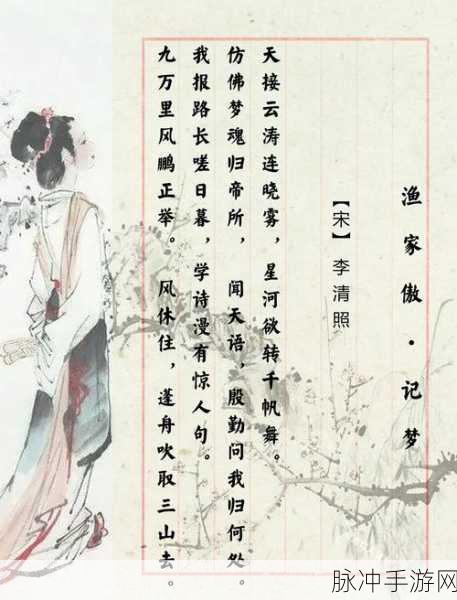 渔家傲·记梦
【宋】李清照
天接云涛连晓雾，星河欲转千帆舞。
仿佛梦魂归帝所，闻天语，殷勤问我归何处。
我报路长嗟日暮，学诗漫有惊人句。
九万里风鹏正举。风休住，蓬舟吹取三山去。
脉冲手游网